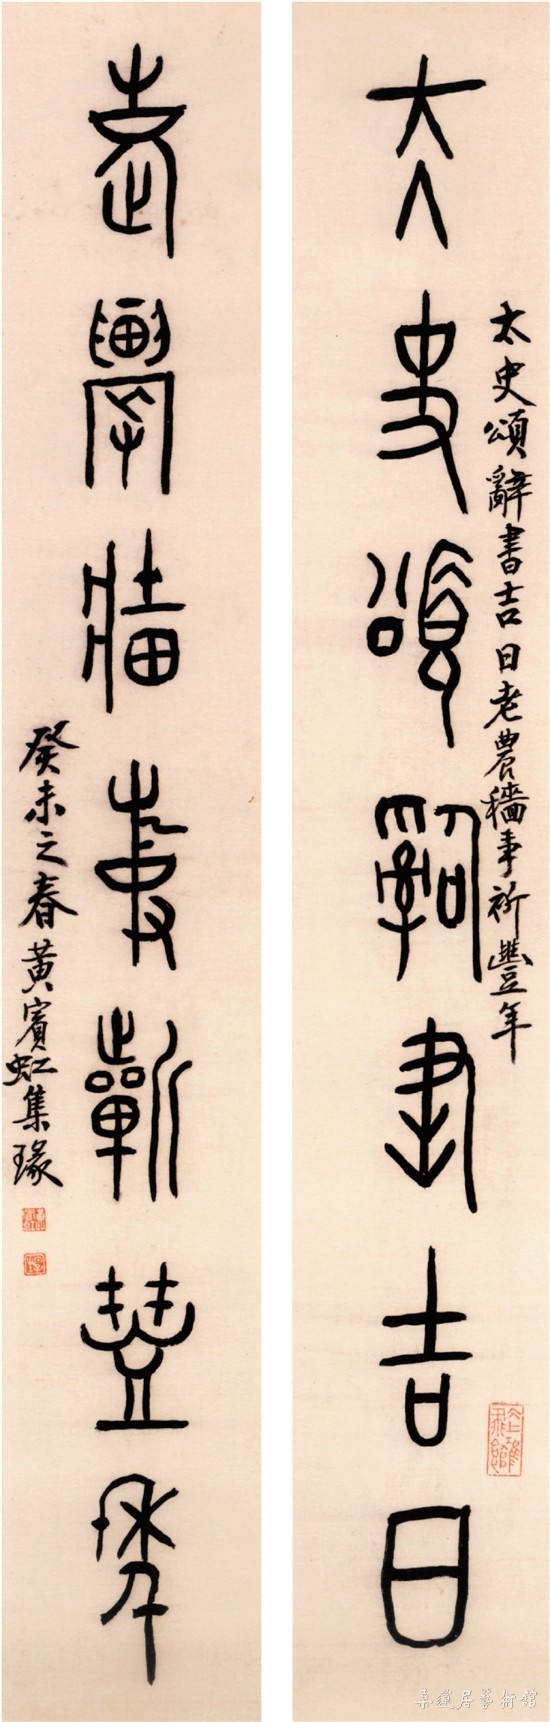 大史頌辭書吉日
太史頌辭書吉日老農穡事祈豐年
老農穡事祈豐年
癸未之春黃賓虹集瑑
桑蓮居藝術館